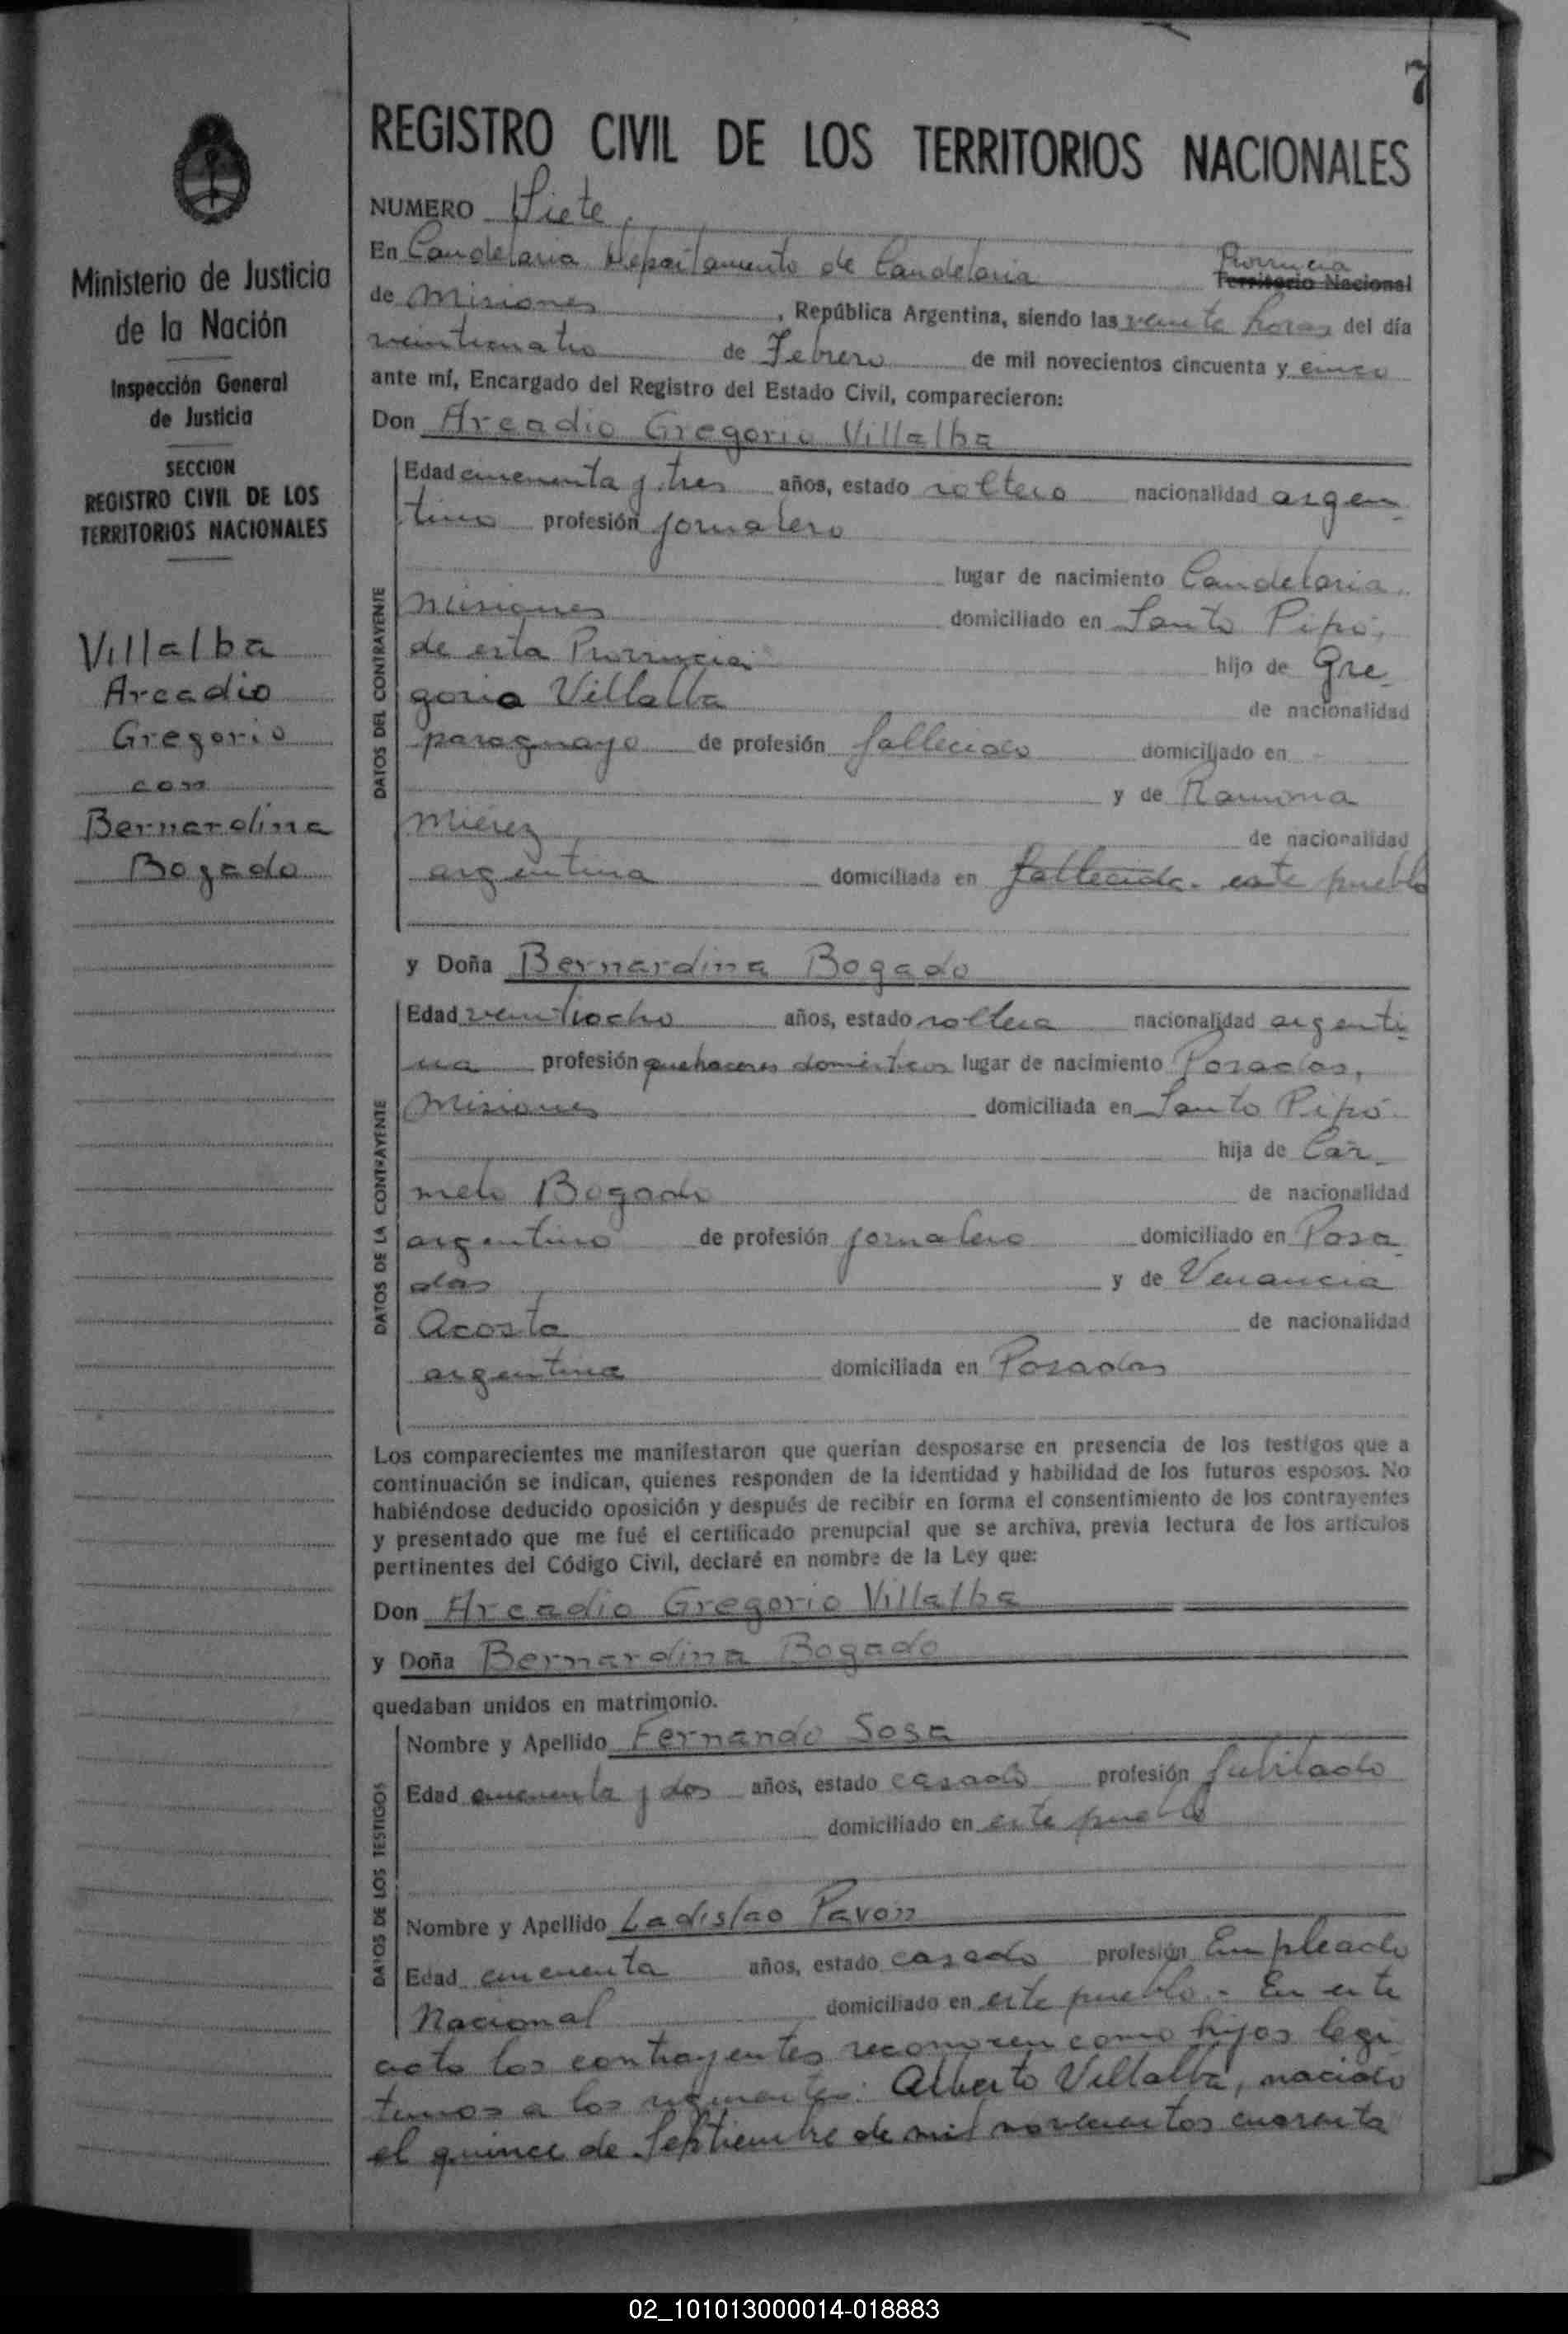 7
REGISTRO CIVIL DE LOS TERRITORIOS NACIONALES
NUMERO Siete
En Candelaria Departamento de Candelaria Provincia
Territorio Nacional
de Misiones, República Argentina, siendo las veinte horas del día
veinticuatro de Febrero de mil novecientos cincuenta y cinco
ante mí, Encargado del Registro del Estado Civil, comparecieron:
Don Arcadio Gregorio Villalba
DATOS DEL CONTRAYENTE
Edad cincuenta y tres años, estado soltero nacionalidad argen-
tino profesión jornalero
lugar de nacimiento Candelaria,
Misiones domiciliado en Santo Pipó,
de esta Provincia hijo de Gre-
gorio Villalba de nacionalidad
paraguayo de profesión fallecido domiciliado en
y de Ramona
Mierez de nacionalidad
argentina domiciliada en fallecida. este pueblo
y Doña Bernardina Bogado
DATOS DE LA CONTRAYENTE
Edad veintiocho años, estado soltera nacionalidad argenti-
na profesión quehaceres domésticos lugar de nacimiento Posadas,
Misiones domiciliada en Santo Pipó
hija de Car-
melo Bogado de nacionalidad
argentino de profesión jornalero domiciliado en Posa-
das y de Venancia
Acosta de nacionalidad
argentina domiciliada en Posadas
Los comparecientes me manifestaron que querían desposarse en presencia de los testigos que a
continuación se indican, quienes responden de la identidad y habilidad de los futuros esposos. No
habiéndose deducido oposición y después de recibir en forma el consentimiento de los contrayentes
y presentado que me fué el certificado prenupcial que se archiva, previa lectura de los artículos
pertinentes del Código Civil, declaré en nombre de la Ley que:
Don Arcadio Gregorio Villalba
y Doña Bernardina Bogado
quedaban unidos en matrimonio.
DATOS DE LOS TESTIGOS
Nombre y Apellido Fernando Sosa
Edad cincuenta y dos años, estado casado profesión Jubilado
domiciliado en este pueblo
Nombre y Apellido Ladislao Pavón
Edad cincuenta años, estado casado profesión Empleado
Nacional domiciliado en este pueblo.- En este
acto los contrayentes reconocen como hijos legí-
timos a los siguientes: Alberto Villalba, nacido
el quince de Septiembre de mil novecientos cuarenta
Ministerio de Justicia
de la Nación
Inspección General
de Justicia
SECCION
REGISTRO CIVIL DE LOS
TERRITORIOS NACIONALES
Villalba
Arcadio
Gregorio
con
Bernardina
Bogado
02_101013000014-018883